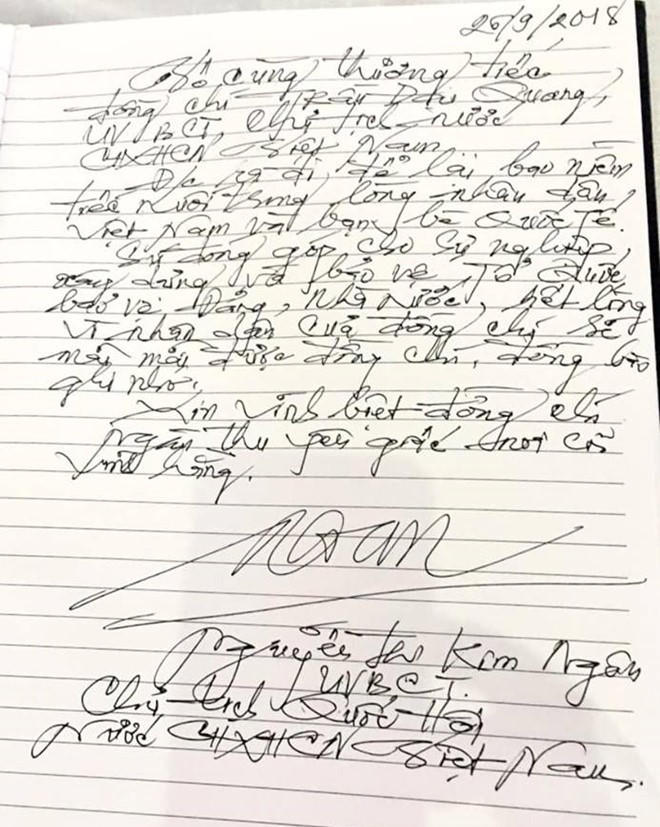 26/9/2018
Vô cùng thương tiếc
đồng chí Trần Đại Quang,
UVBCT, Chủ tịch nước
CHXHCN Việt Nam.
Đ/c ra đi, để lại bao niềm
tiếc nuối trong lòng nhân dân,
Việt Nam và bạn bè Quốc tế.
Sự đóng góp cho sự nghiệp,
xây dựng và bảo vệ Tổ Quốc,
bảo vệ Đảng, Nhà nước, hết lòng
vì nhân dân của đồng chí sẽ
mãi mãi được đồng chí, đồng bào
ghi nhớ.
Xin vĩnh biệt đồng chí
ngàn thu yên giấc nơi cõi
vĩnh hằng.
Ngân
Nguyễn Thị Kim Ngân
UVBCT.
Chủ tịch Quốc Hội
Nước CHXHCN Việt Nam.